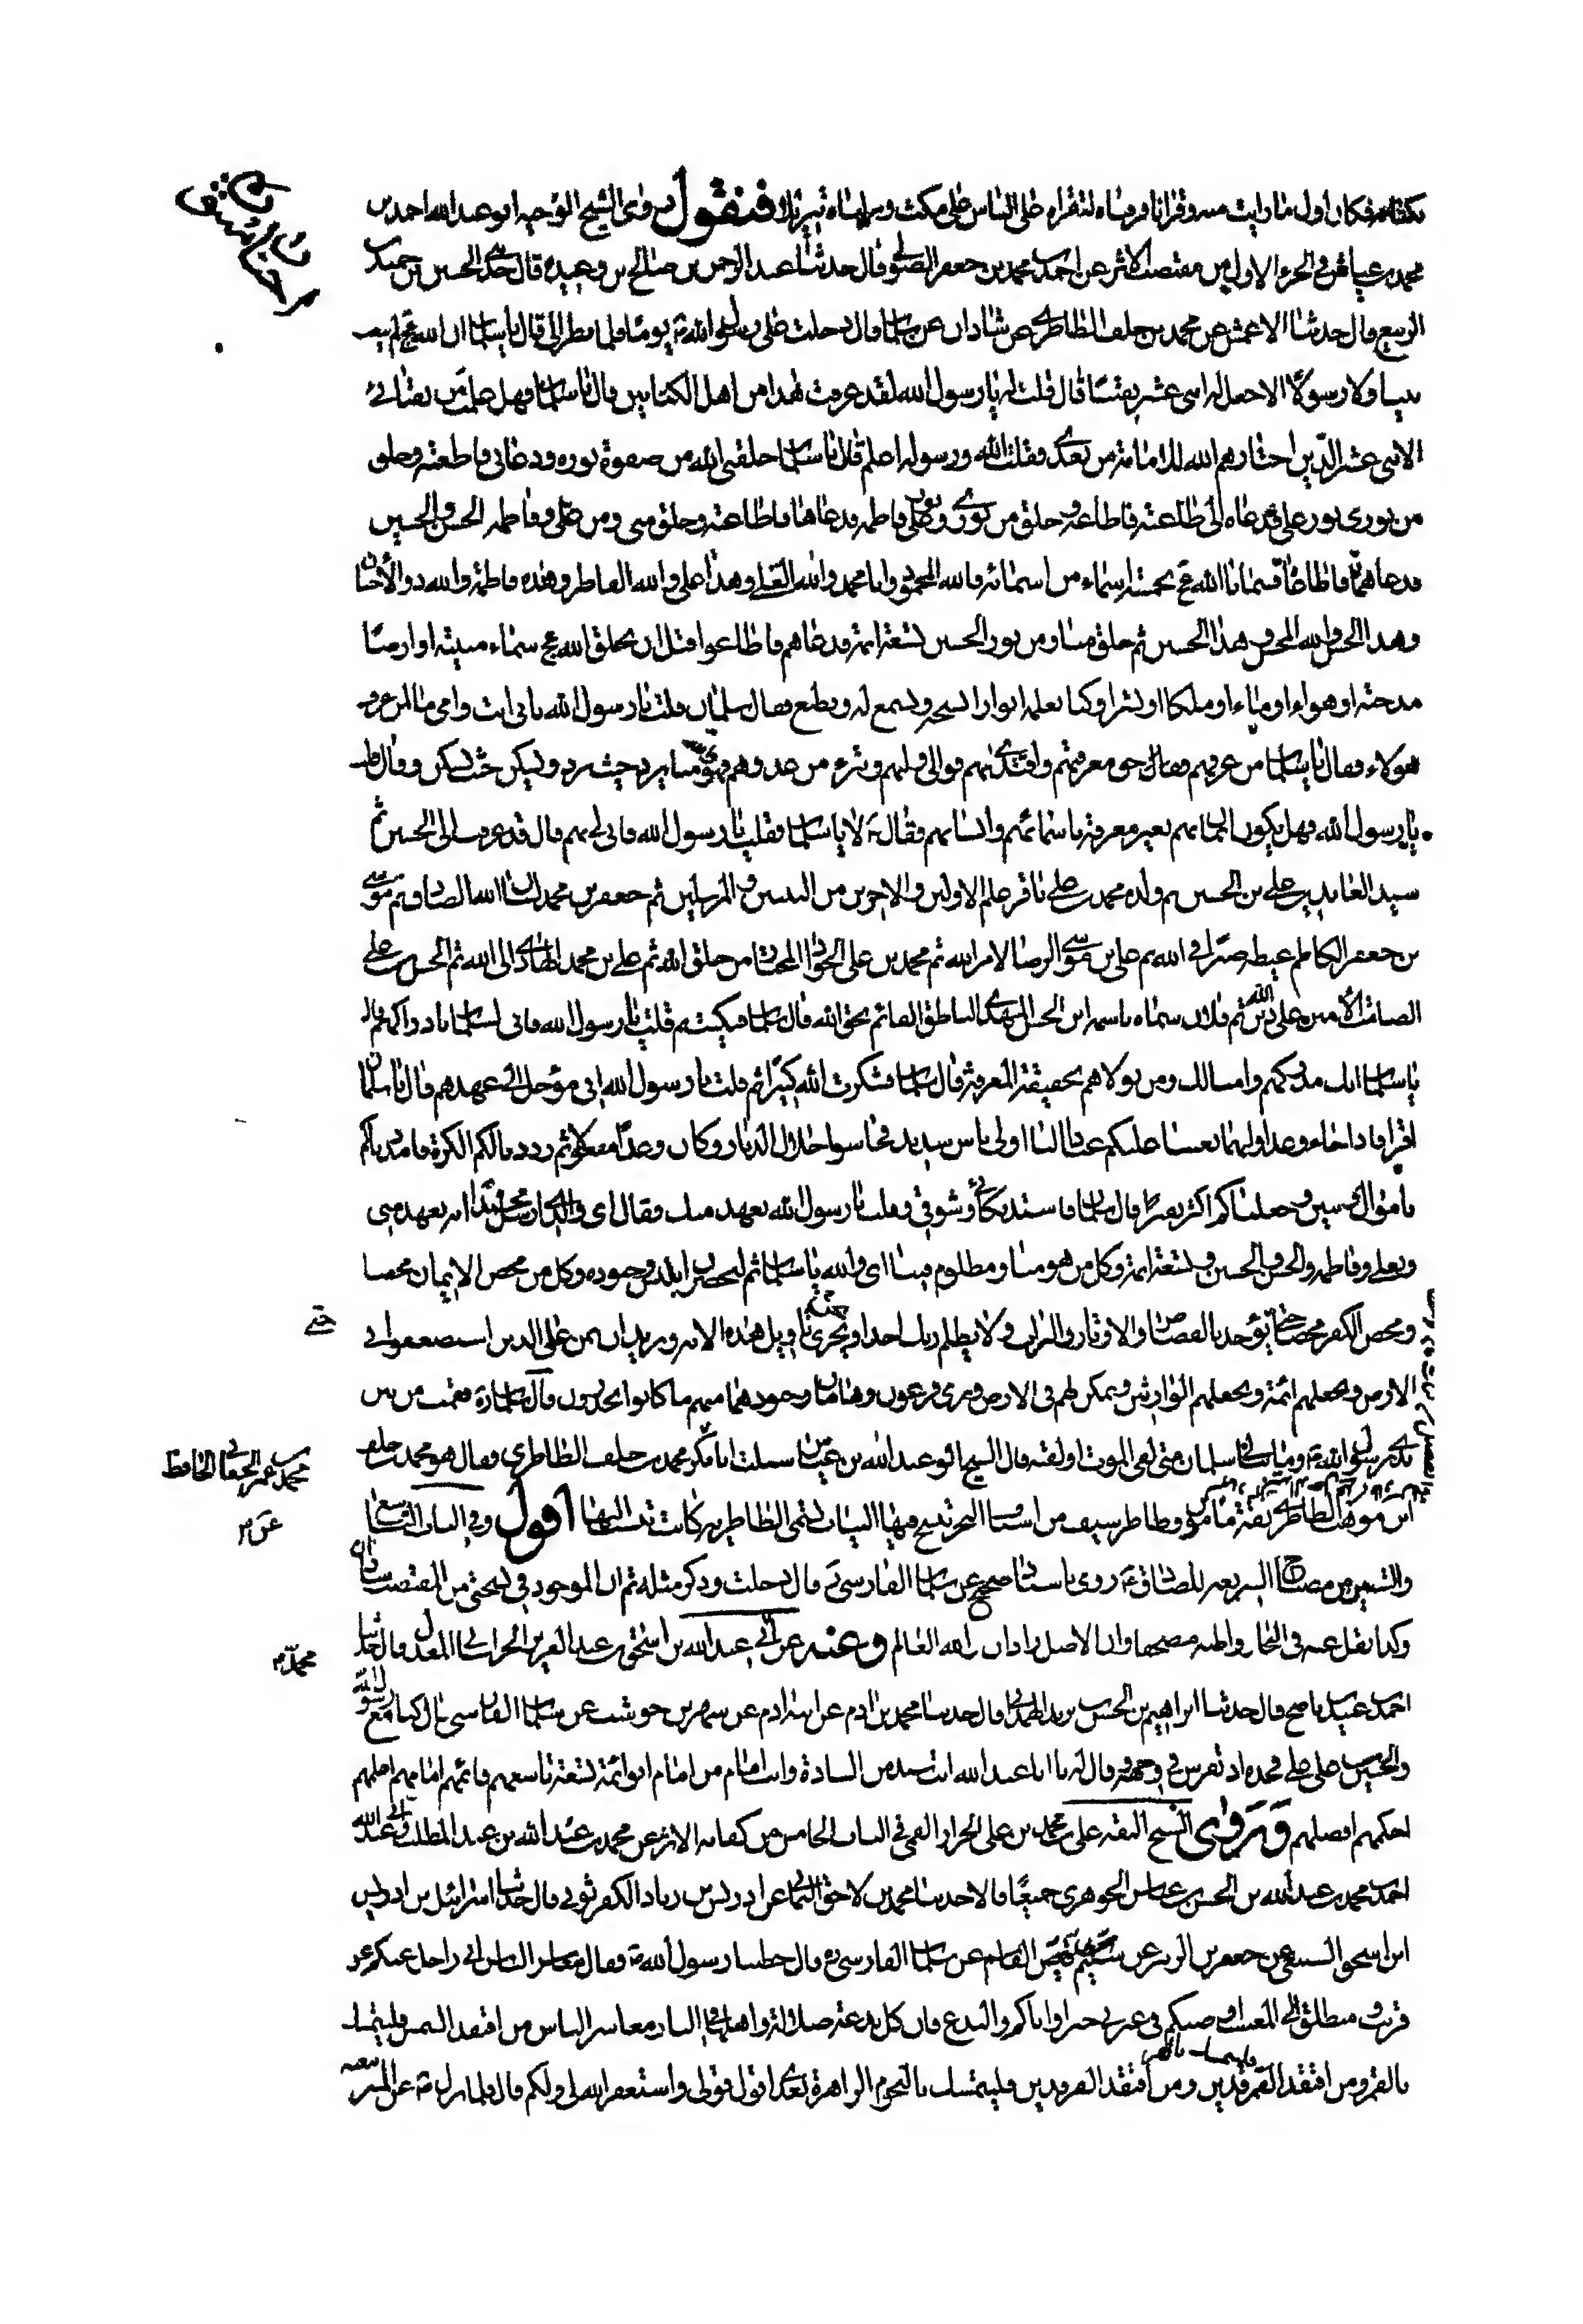 فكان اول ما رايت مسروقرانا فرقناه لتقراه على الناس على مكث ونزلناه تنزيلا فنقول روى الشيخ الوجيه ابو عبد الله احمد بن
محمد بن عياش في الجزء الاول من مقتضب الاثر عن احمد بن محمد بن جعفر الصولي قال حدثنا عبد الرحمن بن صالح بن وعيده قال حدثني الحسين بن حميد بن
الربيع قال حدثنا الاعمش عن محمد بن خلف الطاطري عن شاذان عن سلمان قال دخلت على رسول الله ص يوما فلما نظر الي قال يا سلمان ان الله عج لم يبعث
نبيا ولا رسولا الا جعل له اثني عشر نقيبا قال قلت له يا رسول الله لقد عرفت هذا من اهل الكتابين قال يا سلمان فهل علمت من نقبائي
الاثني عشر الذين اختارهم الله للامامة من بعدي فقلت الله ورسوله اعلم قال يا سلمان خلقني الله من صفوة نوره ودعاني فاطعته وخلق
من نوري نور علي فدعاه الى طاعته فاطاعه وخلق من نوري ونور علي فاطمه فدعاها فاطاعته وخلق مني ومن علي وفاطمه الحسن والحسين
فدعاهما فاطاعاه فسمانا الله عج بخمسة اسماء من اسمائه فالله المحمود وانا محمد والله العلي وهذا علي والله الفاطر وهذه فاطمة والله ذو الاحسان
وهذا الحسن والله المحسن وهذا الحسين ثم خلق منا ومن نور الحسين تسعة ائمة فدعاهم فاطاعوا قبل ان يخلق الله عج سماء مبنية او ارضا
مدحية او هواء او ماء او ملكا او بشرا وكنا بعلمه انوارا نسبحه ونسمع له ونطيع فقال سلمان قلت يا رسول الله بابي انت وامي ما لمن عرف
هؤلاء فقال يا سلمان من عرفهم فقال حق معرفتهم واقتدى بهم فوالى وليهم وتبرء من عدوهم فهو منا يرد حيث نرد ويسكن حيث نسكن وقال قلت
يا رسول الله فهل يكون ايمان بهم بغير معرفة باسمائهم وانسابهم فقال ص لا يا سلمان فقلت يا رسول الله فانى لي بهم قال قد عرفت الى الحسين ثم
سيد العابدين علي بن الحسين ثم ولده محمد بن علي باقر علم الاولين والاخرين من النبيين والمرسلين ثم جعفر بن محمد لسان الله الصادق ثم موسى
بن جعفر الكاظم غيظه صبرا في الله ثم علي بن موسى الرضا لامر الله ثم محمد بن علي الجواد المختار من خلق الله ثم علي بن محمد الهادي الى الله ثم الحسن بن علي
الصامت الامين على دين الله ثم فلان سماه باسمه ابن الحسن المهدي الناطق القائم بحق الله قال سلمان فبكيت ثم قلت يا رسول الله فانى لسلمان بادراكهم قال
يا سلمان انك مدركهم وامثالك ومن تولاهم بحقيقة المعرفة قال سلمان فشكرت الله كثيرا ثم قلت يا رسول الله اني مؤجل الى عهدهم قال يا سلمان
اقرا فاذا جاء وعد اوليهما بعثنا عليكم عبادا لنا اولي باس شديد فجاسوا خلال الديار وكان وعدا مفعولا ثم رددنا لكم الكرة عليهم وامددناكم
باموال وبنين وجعلناكم اكثر نفيرا قال سلمان فاشتد بكائي وشوقي وقلت يا رسول الله بعهد منك فقال اي والذي ارسل محمدا انه بعهد مني
وبعلي وفاطمه والحسن والحسين وتسعة ائمة وكل من هو منا ومظلوم فينا اي والله يا سلمان ثم ليحضرن ابليس وجنوده وكل من محض الايمان محضا
ومحض الكفر محضا حتى يؤخذ بالقصاص والاوتار والتراث ولا يظلم ربك احدا ويجري تاويل هذه الاية ونريد ان نمن على الذين استضعفوا في
الارض ونجعلهم ائمة ونجعلهم الوارثين ونمكن لهم في الارض ونري فرعون وهامان وجنودهما منهم ما كانوا يحذرون قال سلمان ره فقمت من بين
يدي رسول الله ص وما يبالي سلمان متى لقي الموت او لقيه قال الشيخ ابو عبد الله بن عياش سئلت ابا بكر محمد بن خلف الطاطري فقال هو محمد بن خلف
ابن موهب الطاطري ثقة مامون وطاطر سيف من اسياف البحر تنسج فيها الثياب تسمى الطاطريه كانت تنسب اليها اقول وفي الباب التاسع
والتسعين من مصباح الشريعه للصادق ع روى باسناد صحيح عن سلمان الفارسي ره قال دخلت وذكر مثله ثم ان الموجود في نسختي من المقتضب شاذان
وكذا نقل عنه في البحار واظنه مصحفا وان الاصل زاذان والله العالم وعنه عن ابي عبد الله بن اسحق بن عبد العزيز الخراساني المعدل قال حدثنا
احمد بن عبيد بن ناصح قال حدثنا ابراهيم بن الحسن بن يزيد الهمداني قال حدثنا محمد بن ادم عن ابيه ادم عن شهر بن حوشب عن سلمان الفارسي قال كنا مع رسول الله
والحسين بن علي على فخذه اذ تفرس في وجهه وقال له يا ابا عبد الله انت سيد من السادة وانت امام من امام ابو ائمة تسعة تاسعهم قائمهم امامهم اعلمهم
احكمهم افضلهم وروى الشيخ الثقه علي بن محمد بن علي الخزاز القمي في الباب الخامس من كفاية الاثر عن محمد بن عبد الله بن عبد المطلب وابي عبد الله
احمد بن محمد بن عبد الله بن الحسن بن عياش الجوهري جميعا قالا حدثنا محمد بن لاحق اليماني عن ادريس بن زياد الكفرثوثي قال حدثنا اسرائيل بن ادريس
ابن اسحق السبيعي عن جعفر بن الزبير عن القاسم عن سلمان الفارسي ره قال خطبنا رسول الله ص فقال معاشر الناس اني راحل عنكم عن
قريب ومنطلق الى المغيب اوصيكم في عترتي خيرا واياكم والبدع فان كل بدعة ضلالة واهلها في النار معاشر الناس من افتقد الشمس فليتمسك
بالقمر ومن افتقد القمر فليتمسك بالفرقدين ومن افتقد الفرقدين فليتمسك بالنجوم الزاهرة بعدي اقول قولي واستغفر الله لي ولكم قال فلما نزل ص عن المنبر تبعته
حتى
محمد بن عمر الجعابي الحافظ
محمد